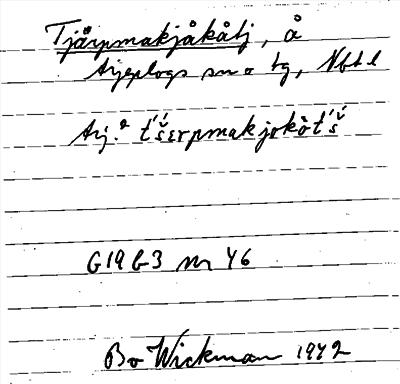 Tjärpmakjåkåtj, å
Arjeplogs sn o tg, Nbtl
Arj. t́š́ɛrpmakjokòt́š́
G19 b3 nr 46
Bo Wickman 1942